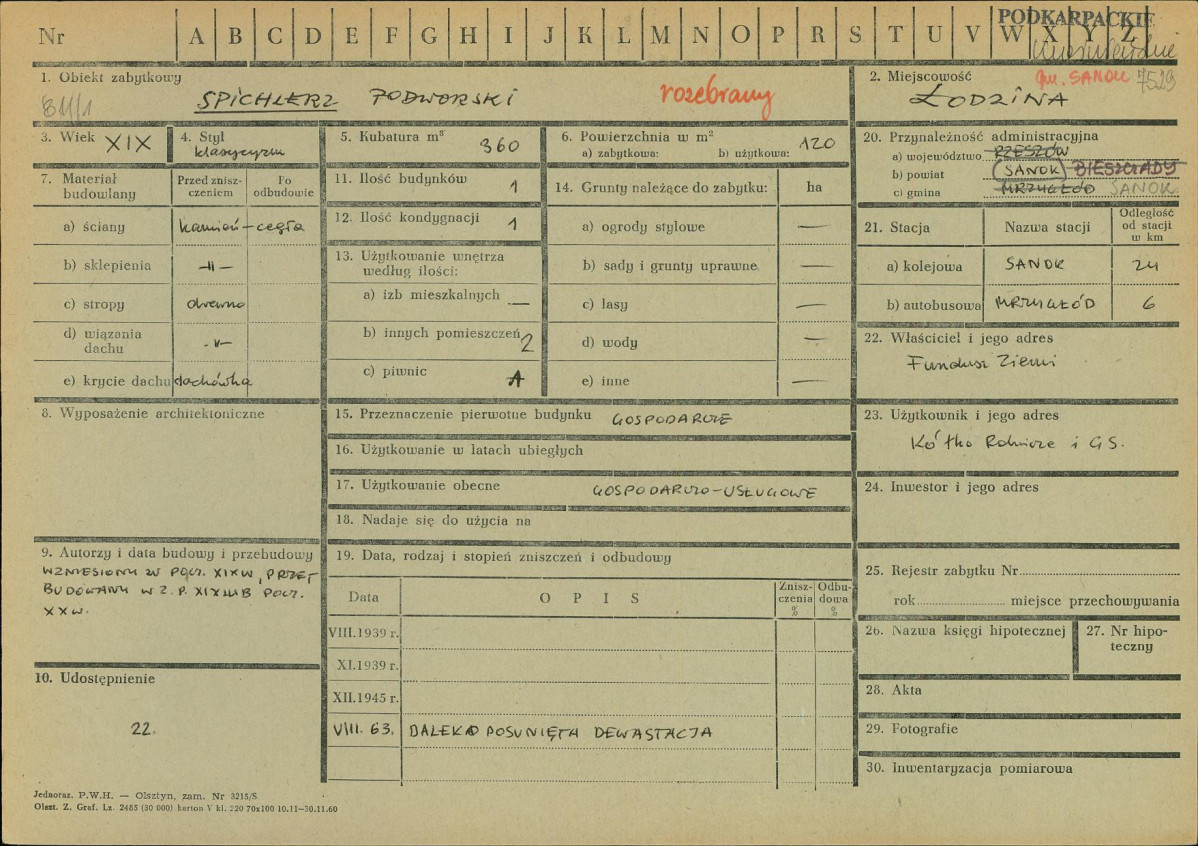 Nr A B C D E F G H I J K L M N O P R S T U V W X Y Z
PODKARPACKIE
1. Obiekt zabytkowy
SPICHLERZ PODWORSKI
rozebrany
2. Miejscowość
gm. SANOK 7529
ŁODZINA
3. Wiek XIX
4. Styl
klasycyzm
5. Kubatura m³
360
6. Powierzchnia w m²
a) zabytkowa: b) użytkowa: 120
20. Przynależność administracyjna
a) województwo RZESZÓW
b) powiat (SANOK) BIESZCZADY
c) gmina MRZYGŁÓD SANOK
7. Materiał budowlany
Przed zniszczeniem
Po odbudowie
a) ściany kamień-cegła
b) sklepienia -"-
c) stropy drewno
d) wiązania dachu -"-
e) krycie dachu dachówka
11. Ilość budynków 1
12. Ilość kondygnacji 1
13. Użytkowanie wnętrza
według ilości:
a) izb mieszkalnych —
b) innych pomieszczeń 2
c) piwnic 1
14. Grunty należące do zabytku: ha
a) ogrody stylowe —
b) sady i grunty uprawne —
c) lasy —
d) wody —
e) inne —
21. Stacja
Nazwa stacji
Odległość od stacji w km
a) kolejowa SANOK 24
b) autobusowa MRZYGŁÓD 6
22. Właściciel i jego adres
Fundusz Ziemi
8. Wyposażenie architektoniczne
15. Przeznaczenie pierwotne budynku GOSPODARCZE
16. Użytkowanie w latach ubiegłych
17. Użytkowanie obecne GOSPODARCZO-USŁUGOWE
18. Nadaje się do użycia na
23. Użytkownik i jego adres
Kółko Rolnicze i GS.
24. Inwestor i jego adres
9. Autorzy i data budowy i przebudowy
WZNIESIONY W POCZ. XIX W, PRZE
BUDOWANY W 2. P. XIX LUB POCZ.
XX W.
19. Data, rodzaj i stopień zniszczeń i odbudowy
Data
O P I S
Zniszczenia %
Odbudowa %
VIII.1939 r.
XI.1939 r.
XII.1945 r.
VIII. 63. DALEKO POSUNIĘTA DEWASTACJA
10. Udostępnienie
22.
25. Rejestr zabytku Nr
rok miejsce przechowywania
26. Nazwa księgi hipotecznej
27. Nr hipoteczny
28. Akta
29. Fotografie
30. Inwentaryzacja pomiarowa
Jednoraz. P.W.H. — Olsztyn, zam. Nr 3215/S
Olszt. Z. Graf. Lz. 2485 (30 000) karton V kl. 220 70x100 10.11—30.11.60